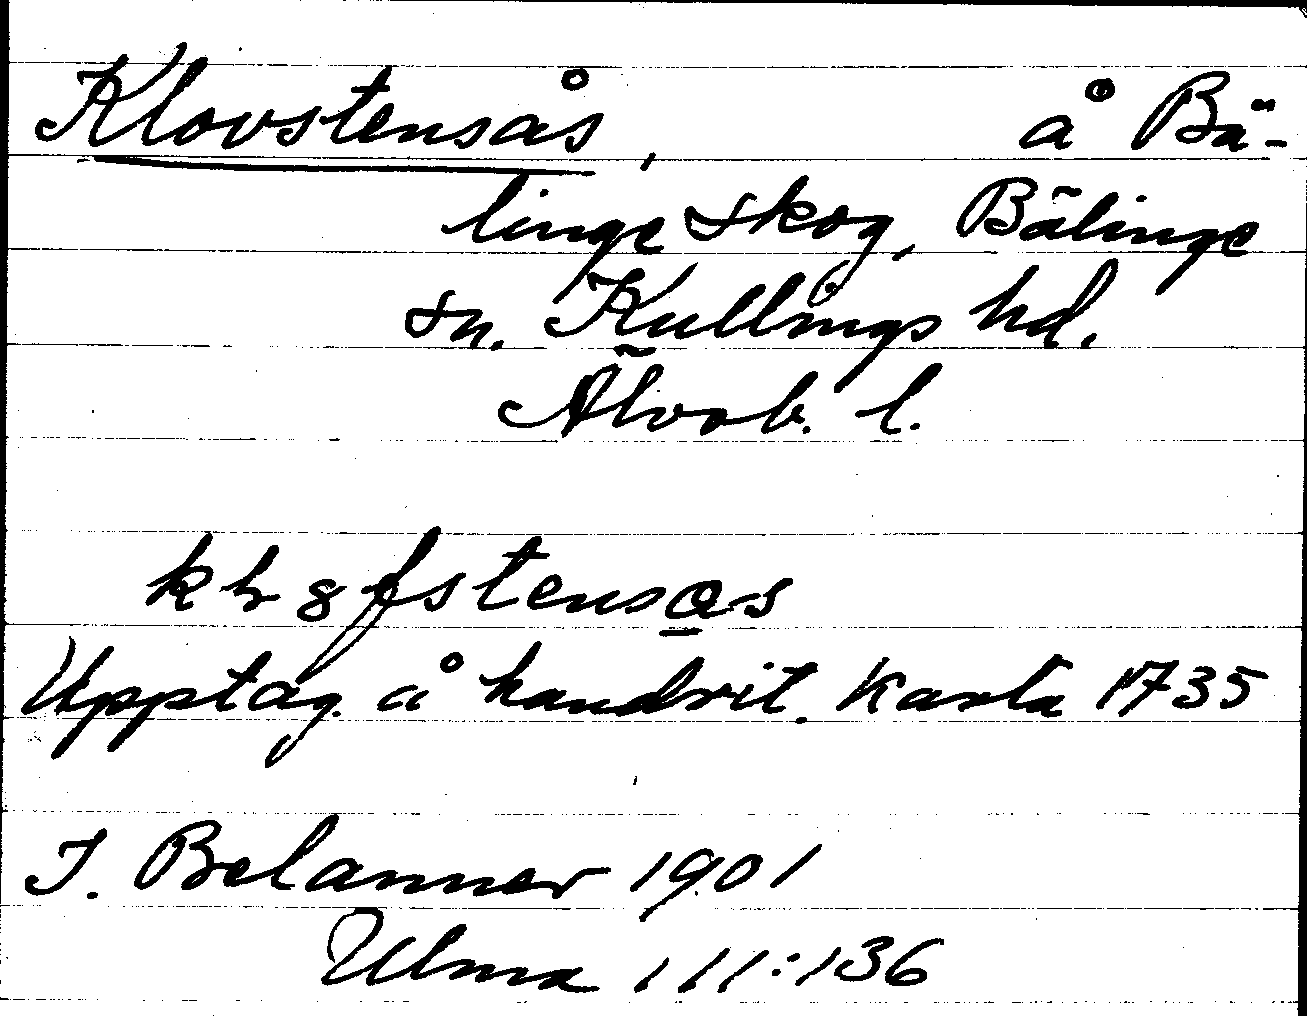 Klovstensås, å Bä-
linge skog, Bälinge
sn. Kullings hd.
Älvsb. l.
Upptag. å handrit. karta 1735
J. Belanner 1901
Ulma 111:136